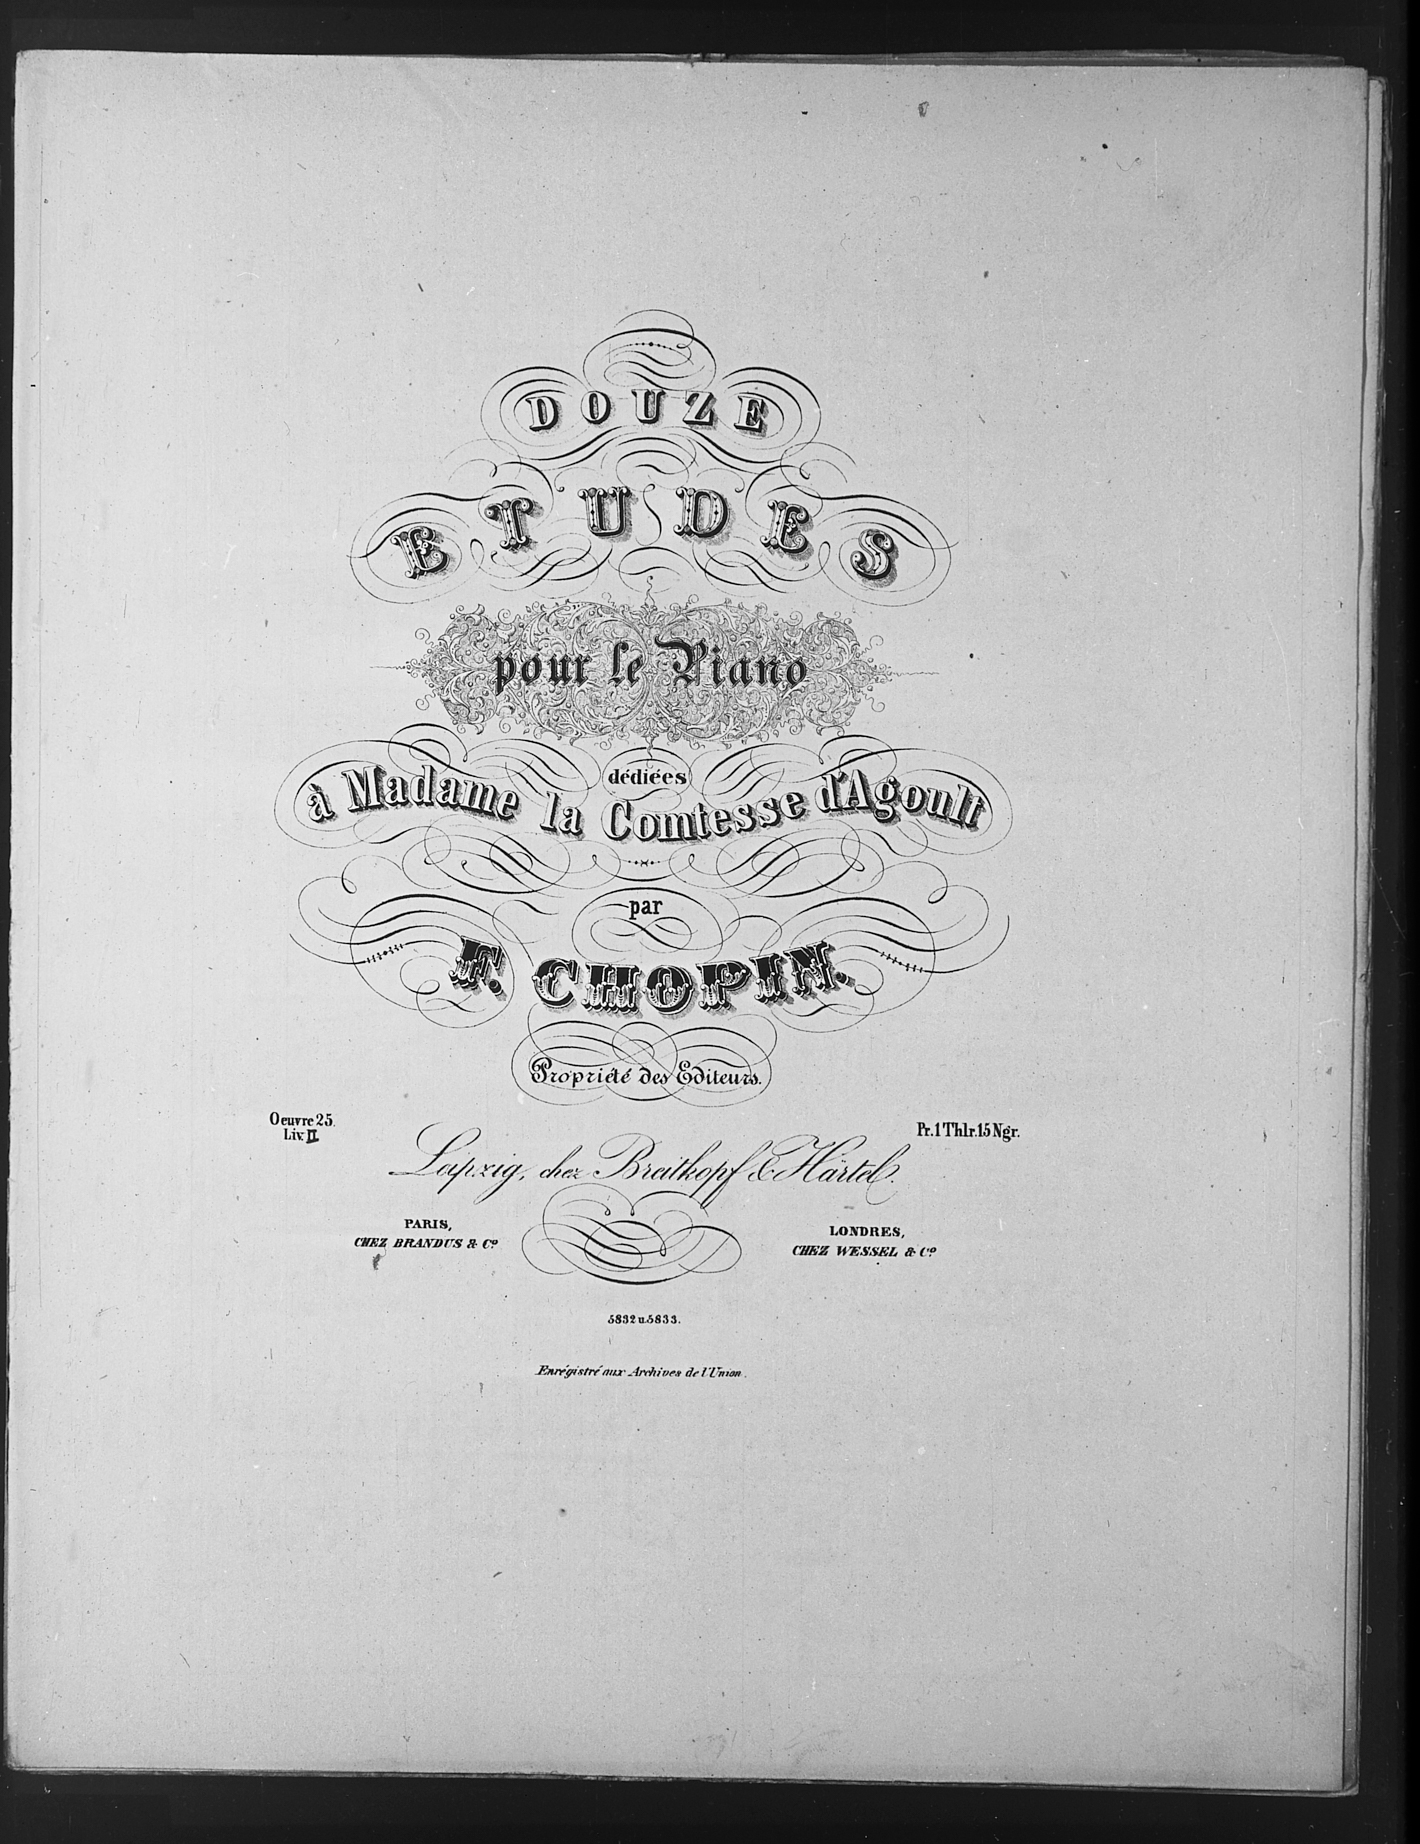 DOUZE
ETUDES
pour le Piano
dédiées
à Madame la Comtesse d'Agoult
par
F. CHOPIN.
Propriété des Editeurs.
Oeuvre 25.
Liv. II
Pr. 1 Thlr. 15 Ngr.
Leipzig, chez Breitkopf & Härtel.
PARIS,
CHEZ BRANDUS & Cº
LONDRES,
CHEZ WESSEL & Cº
5832 u. 5833.
Enrégistré aux Archives de l'Union.